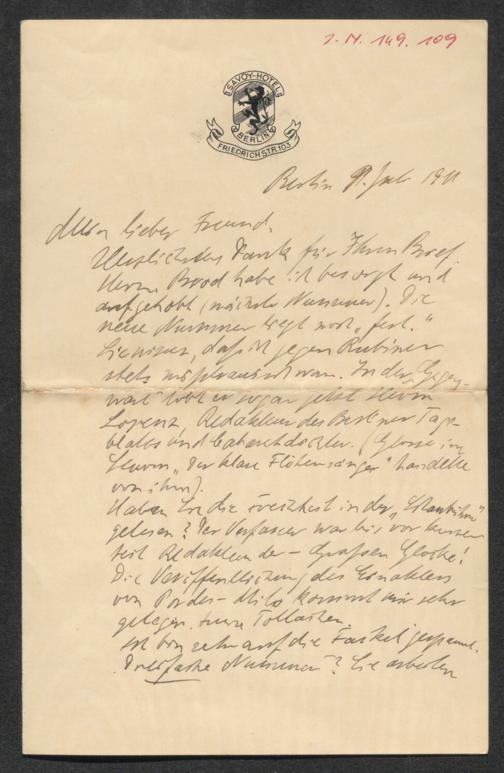 I. N. 149. 109
SAVOY-HOTEL
BERLIN
FRIEDRICHSTR. 103
Berlin Juli 1911
Mein lieber Freund,
Herzlichsten Dank für Ihren Brief.
Herrn habe ich besorgt und
(nächste Nummer). Die
neue Nummer liegt noch „fest."
Sie wissen, daß ich gegen Rubiner
stets misstrauisch war. In der Gegen-
wart lobt er sogar jetzt Herrn
Lorenz, Redakteur des Berliner Tage-
blatts und Cabaretdichter. (Glosse im
Sturm „Der blaue Flötensänger" handelte
von ihm).
Haben Sie die Frechheit in der „Schaubühne"
gelesen? Der Verfasser war bis vor kurzer
Zeit Redakteur der – Großen Glocke!
Die Veröffentlichung des Einakters
von Pordes-Milo kommt mir sehr
gelegen.
Ich bin sehr auf die Fackel gespannt.
Dreifache Nummer? Sie arbeiten